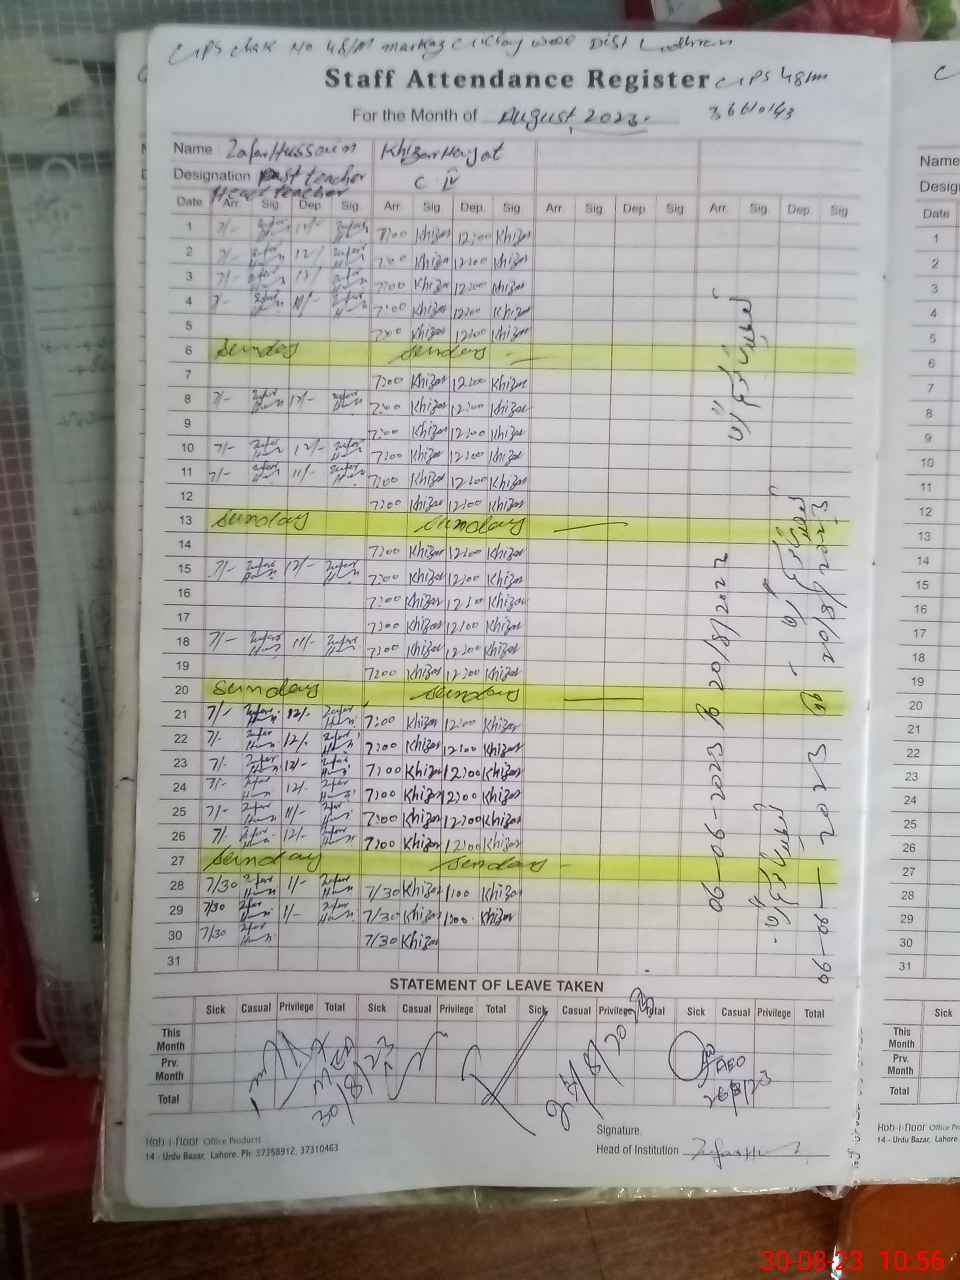 GPS Chak No 48/M
Staff Attendance Register GPS 48/M
For the Month of August, 2023. 36610143
Name Zafar Hussain Khizar Hayat
Designation teacher C IV
Head teacher
Date Arr. Sig. Dep. Sig. Arr. Sig. Dep. Sig. Arr. Sig. Dep. Sig. Arr. Sig. Dep. Sig.
1 7/- Zafar 12/- Zafar 7:00 Khizar 12:00 Khizar
2 7/- Zafar 12/ Zafar 7:00 Khizar 12:00 Khizar
3 7/- Zafar 12/ Zafar 7:00 Khizar 12:00 Khizar
4 7- Zafar 11/- Zafar 7:00 Khizar 12:00 Khizar
5 7:00 Khizar 12:00 Khizar
6 Sunday Sunday
7 7:00 Khizar 12:00 Khizar
8 7/- Zafar 12/- Zafar 7:00 Khizar 12:00 Khizar
9 7:00 Khizar 12:00 Khizar
10 7/- Zafar 12/- Zafar 7:00 Khizar 12:00 Khizar
11 7/- Zafar 11/- Zafar 7:00 Khizar 12:00 Khizar
12 7:00 Khizar 12:00 Khizar
13 Sunday Sunday
14 7:00 Khizar 12:00 Khizar
15 7/- Zafar 12/- Zafar 7:00 Khizar 12:00 Khizar
16 7:00 Khizar 12:00 Khizar
17 7:00 Khizar 12:00 Khizar
18 7/- Zafar 11/- Zafar 7:00 Khizar 12:00 Khizar
19 7:00 Khizar 12:00 Khizar
20 Sunday Sunday
21 7/- Zafar 12/- Zafar 7:00 Khizar 12:00 Khizar
22 7/- Zafar 12/- Zafar 7:00 Khizar 12:00 Khizar
23 7/- Zafar 12/- Zafar 7:00 Khizar 12:00 Khizar
24 7/- Zafar 12/- Zafar 7:00 Khizar 12:00 Khizar
25 7/- Zafar 11/- Zafar 7:00 Khizar 12:00 Khizar
26 7/- Zafar 12/- Zafar 7:00 Khizar 12:00 Khizar
27 Sunday Sunday
28 7/30 Zafar 1/- Zafar 7/30 Khizar 1:00 Khizar
29 7/30 Zafar 1/- Zafar 7/30 Khizar 1:00 Khizar
30 7/30 Zafar 7/30 Khizar
31
06-06-2023
20/8/2022
06-06-2023
20/8/2023
STATEMENT OF LEAVE TAKEN
Sick Casual Privilege Total Sick Casual Privilege Total Sick Casual Privilege Total Sick Casual Privilege Total
This Month
Prv. Month
Total
30/8/23
24/8/2023
AEO
26/8/23
Hob-i-noor Office Products
14 - Urdu Bazar, Lahore. Ph: 37358912, 37310463
Signature.
Head of Institution
Name
Design
Date
1
2
3
4
5
6
7
8
9
10
11
12
13
14
15
16
17
18
19
20
21
22
23
24
25
26
27
28
29
30
31
Sick
This Month
Prv. Month
Total
Hob-i-noor Office
14 - Urdu Bazar, Lahore.
30-08-23 10:56